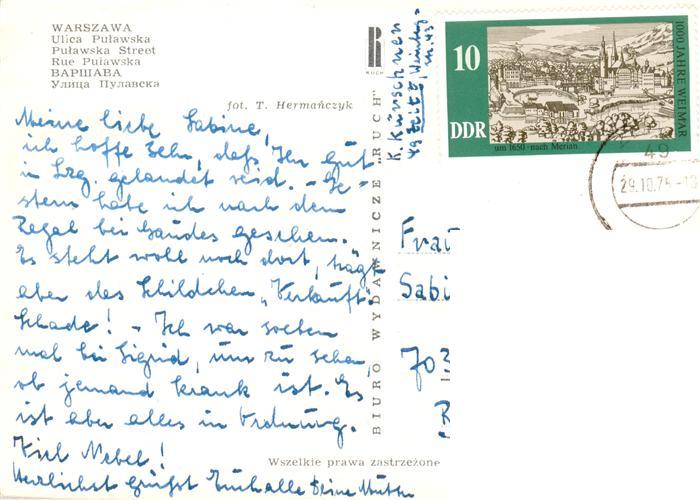 WARSZAWA
Ulica Puławska
Puławska Street
Rue Puławska
ВАРШАВА
Улица Пулавска
fot. T. Hermańczyk
Meine liebe Sabine,
ich hoffe sehr, daß Ihr gut
in Lzg. gelandet seid. – Ge-
stern habe ich nach dem
Regal bei Gaudes gesehen.
Es steht wohl noch dort, trägt
aber das Schildchen „Verkauft".
Schade! – Ich war soeben
mal bei Sigrid, um zu sehen,
ob jemand krank ist. Es
ist aber alles in Ordnung.
Viel Nebel!
Herzlichst grüßt Euch alle Deine Mutti
BIURO WYDAWNICZE „RUCH"
RUCH
Wszelkie prawa zastrzeżone
K. Kürschner
49 Zeitz,
Nr. 43
10
DDR
um 1650 · nach Merian
1000 JAHRE WEIMAR
49
29.10.75-19
Frau
Sabi
703